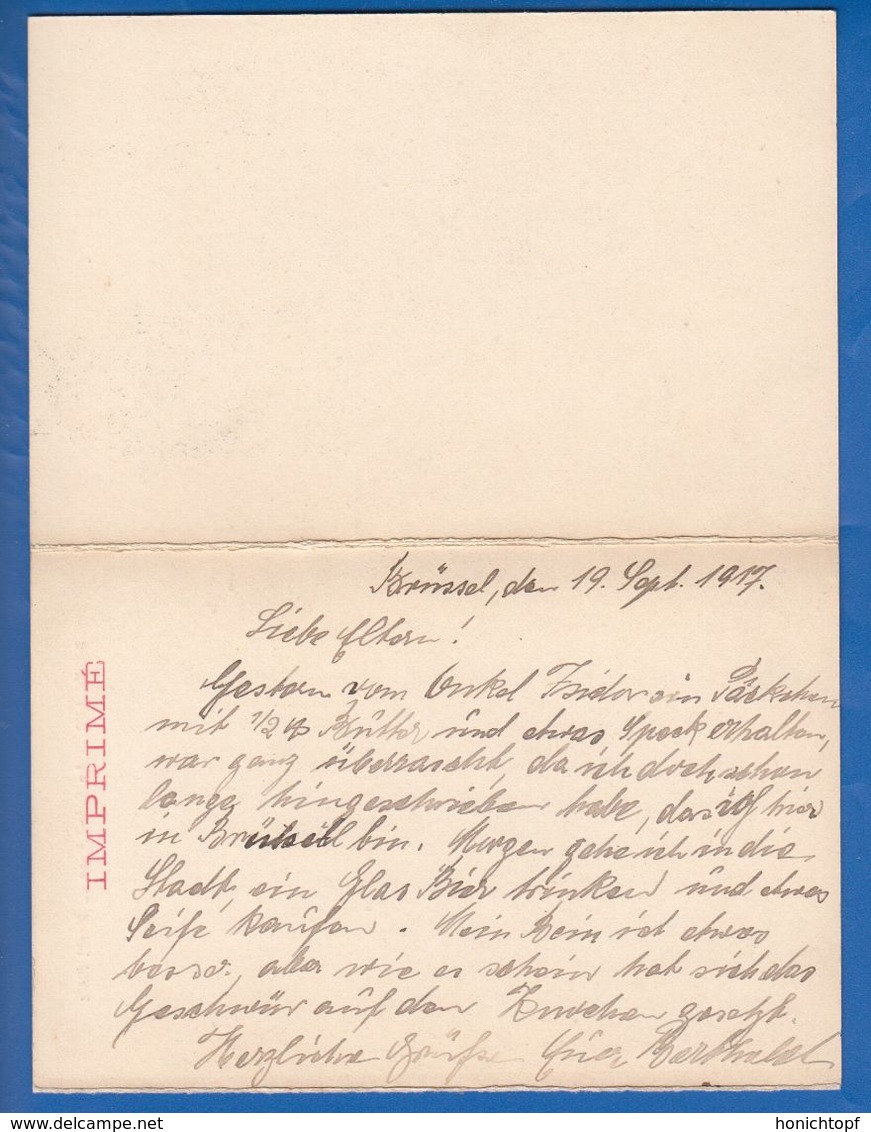 Brüssel, den 19. Sept. 1917.
Liebe Eltern!
Gestern vom Onkel Isidor ein Päckchen
mit 1/2 ℔ Bütter und etwas Speck erhalten,
war ganz überrascht, da ich doch schon
lange hingeschrieben habe, das ich hier
in Brüssel bin. Morgen gehe ich in die
Stadt, ein Glas Bier trinken und etwas
Seife kaufen. Mein Bein ist etwas
besser, aber wie es schein hat sich das
Geschwür auf den Knochen gesetzt.
Herzliche Grüße Euer Berthold
IMPRIMÉ
delcampe.net
honichtopf